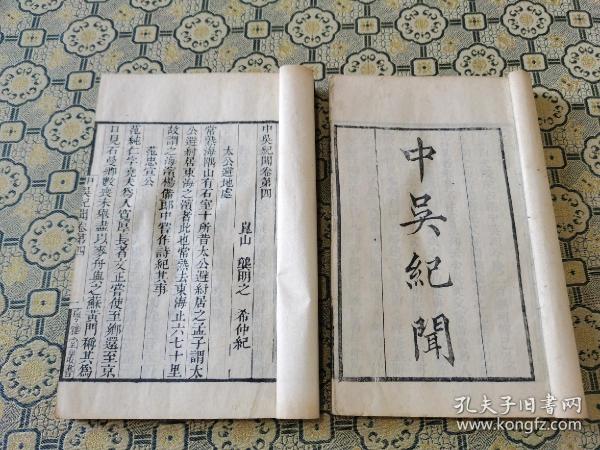 中吳紀聞
中吳紀聞卷第四
崑山 龔明之 希仲紀
太公避地處
常熟海隅山有石室十所昔太公避紂居之孟子謂太
公避紂居東海之濱者此也常熟去東海止六七十里
故謂之海濱楊備郎中嘗作詩紀其事
范忠宣公
范純仁字堯夫為人寬厚長者文正嘗使至鄉還至京
口見石曼卿數喪未舉盡以麥舟與之蘇黃門稱其為
中吳紀聞卷第四
孔夫子旧书网
www.kongfz.com